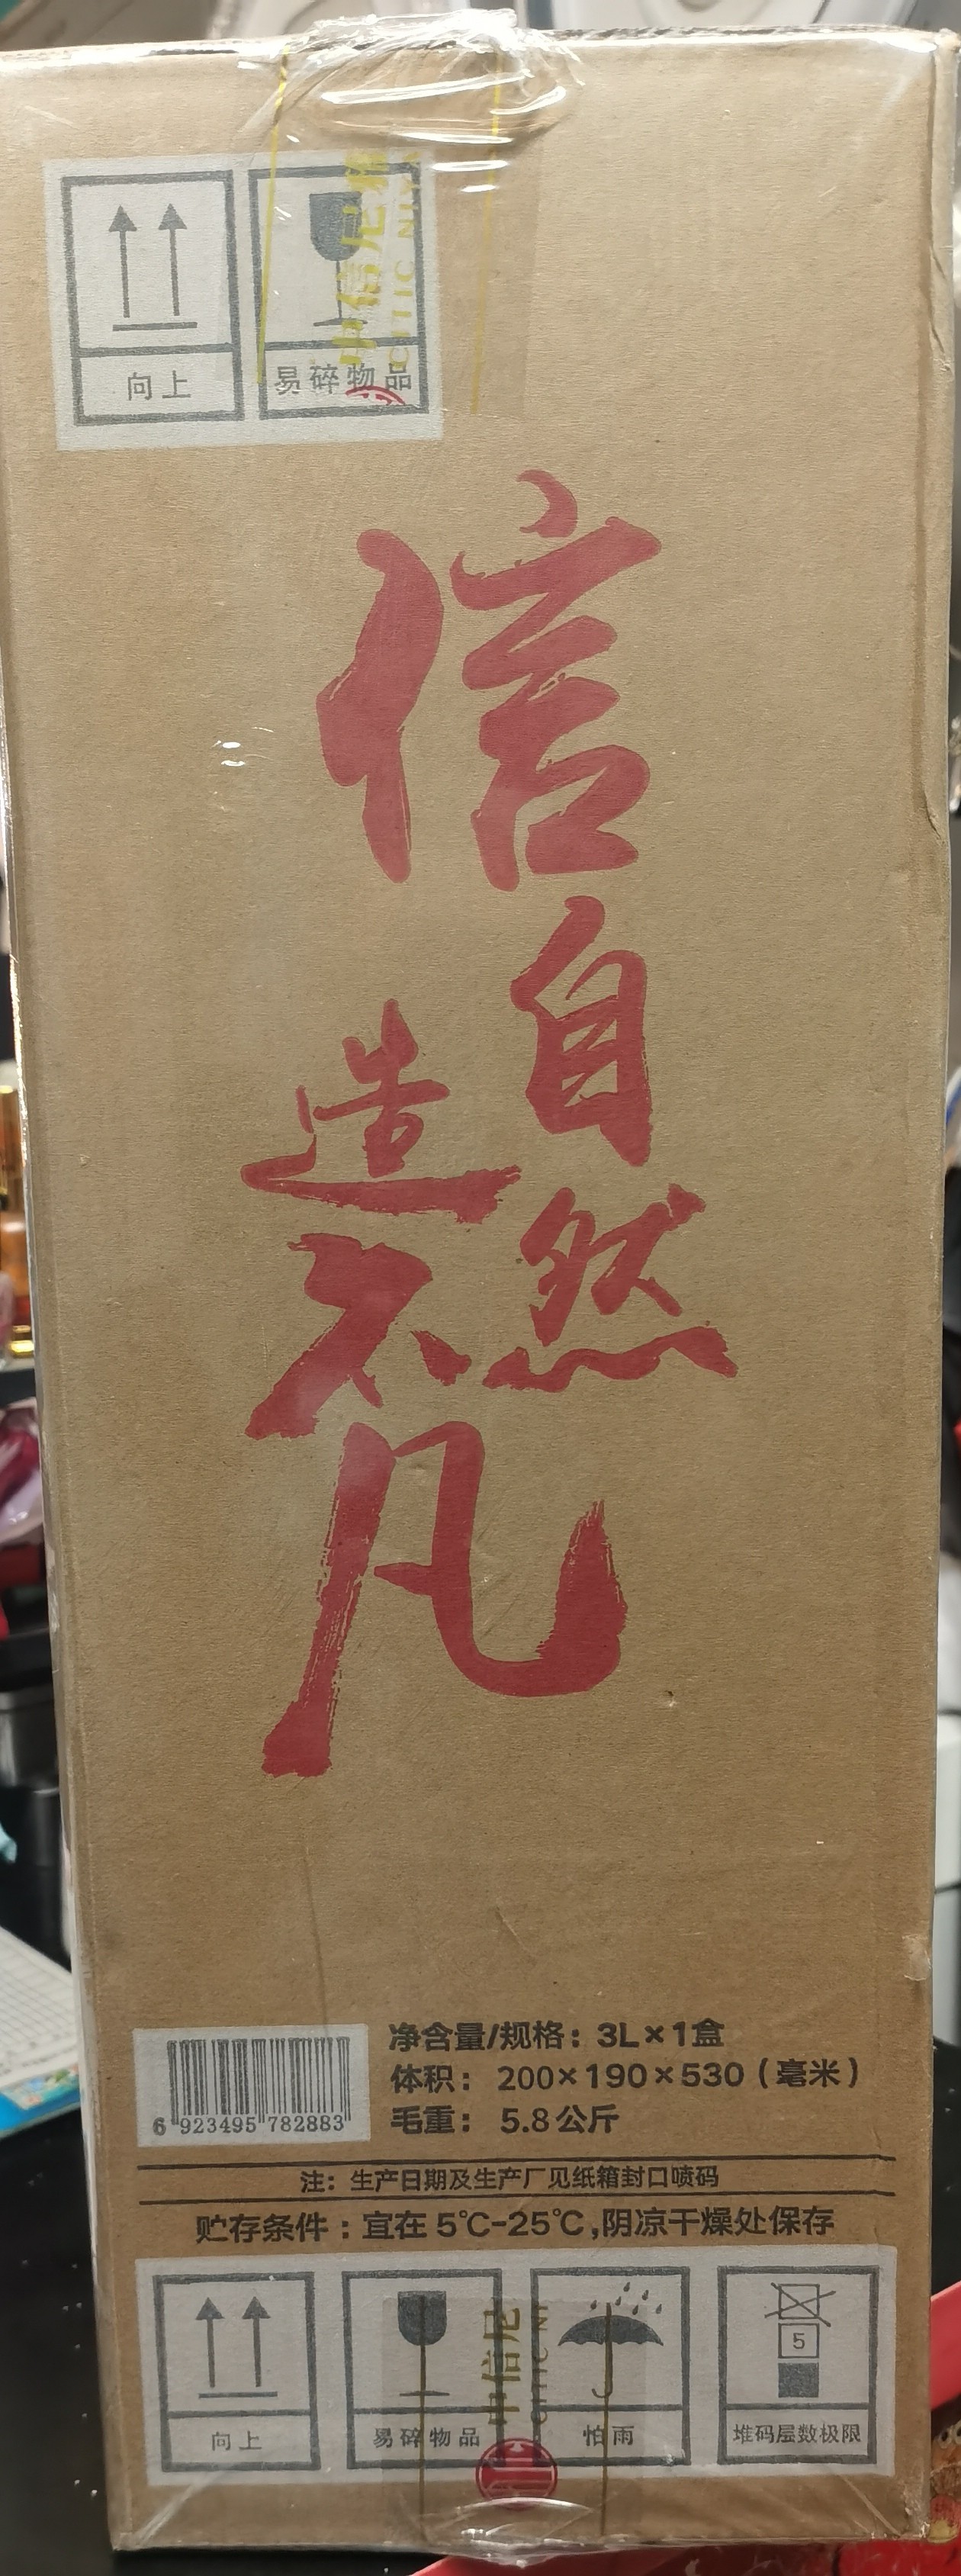 向上
易碎物品
中信尼雅
CITIC NIYA
信自然
造不凡
6 923495 782883
净含量/规格：3L×1盒
体积：200×190×530（毫米）
毛重：5.8公斤
注：生产日期及生产厂见纸箱封口喷码
贮存条件：宜在5℃-25℃,阴凉干燥处保存
5
向上
易碎物品
怕雨
堆码层数极限
中信尼
CITIC NI